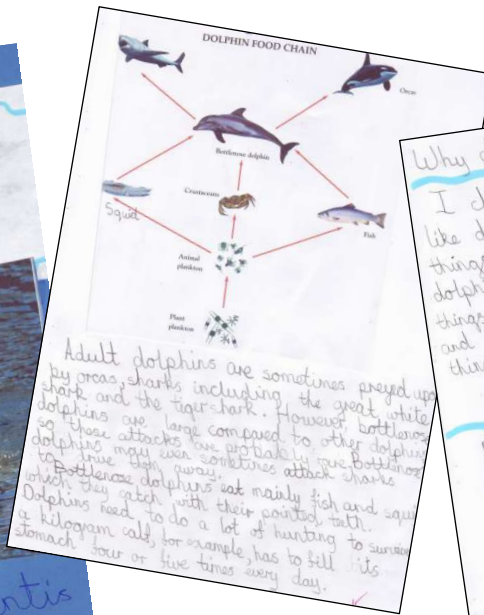 DOLPHIN FOOD CHAIN
Orcas
Bottlenose dolphin
Crustaceans
Squid
Fish
Animal
plankton
Plant
plankton
Adult dolphins are sometimes preyed upo
by orcas, sharks including the great white
shark and the tiger shark. However, bottlenos
dolphins are large compared to other dolphins
so these attacks are probably rare. Bottlenose
dolphins may even sometimes attack sharks
to drive them away.
Bottlenose dolphins eat mainly fish and squi
which they catch with their pointed teeth.
Dolphins need to do a lot of hunting to survive
a kilogram calf, for example, has to fill its
stomach four or five times every day.
Why
I
like d
things
dolph
things
and
thin
ntis